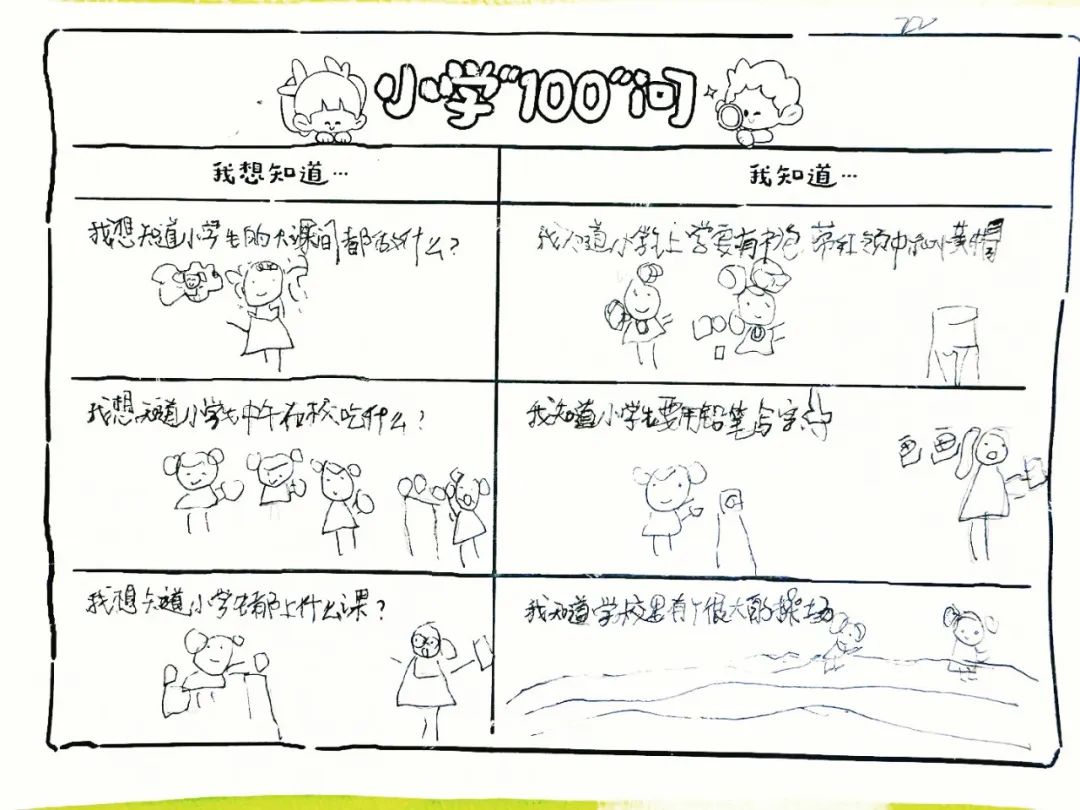 小学“100”问
我想知道…
我知道…
我想知道小学生的大课间都在做什么？
我知道小学生上学要有书包 带红领巾和小黄帽
我想知道小学生中午在校吃什么？
我知道小学生要用铅笔写字
画画
我想知道小学生都上什么课？
我知道学校里有个很大的操场